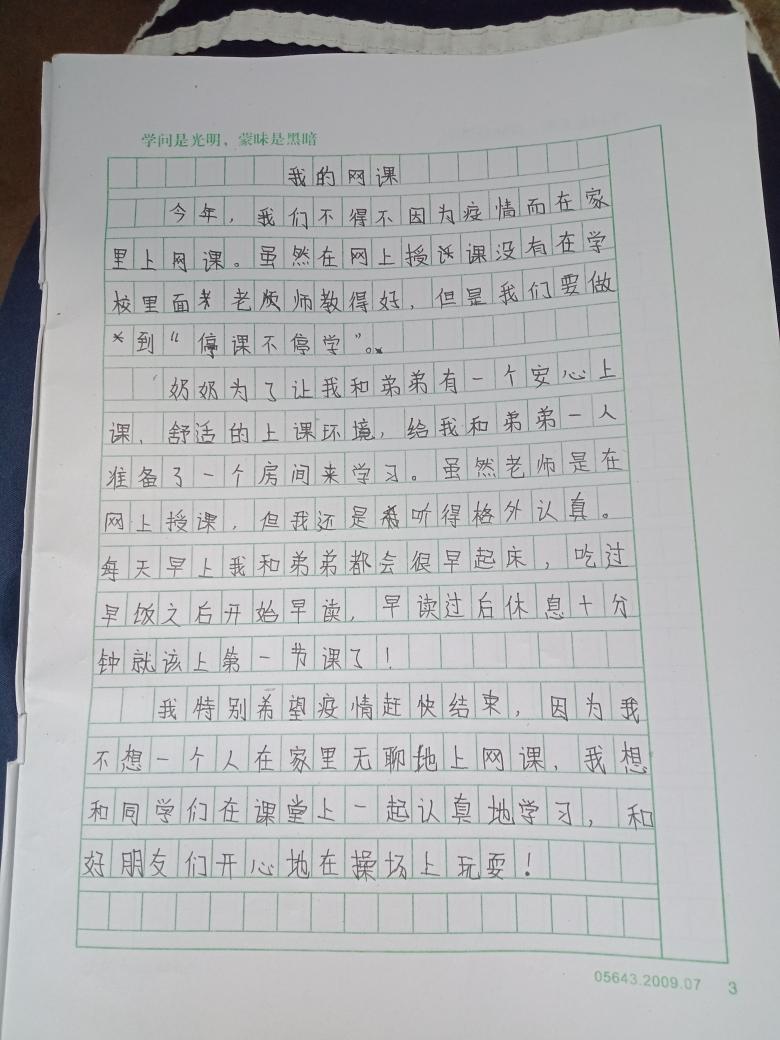 学问是光明，蒙昧是黑暗
我的网课
今年，我们不得不因为疫情而在家
里上网课。虽然在网上授课没有在学
校里面老师教得好，但是我们要做
到“停课不停学”。
奶奶为了让我和弟弟有一个安心上
课、舒适的上课环境，给我和弟弟一人
准备了一个房间来学习。虽然老师是在
网上授课，但我还是听得格外认真。
每天早上我和弟弟都会很早起床，吃过
早饭之后开始早读，早读过后休息十分
钟就该上第一节课了！
我特别希望疫情赶快结束，因为我
不想一个人在家里无聊地上网课，我想
和同学们在课堂上一起认真地学习，和
好朋友们开心地在操场上玩耍！
05643.2009.07 3